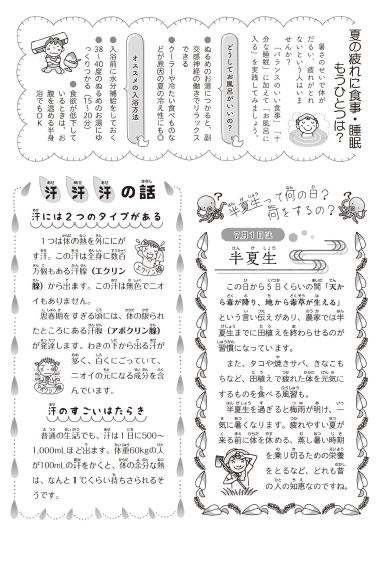 夏の疲れに食事・睡眠
もうひとつは？
暑さのせいで体が
だるい、疲れがとれ
ないという人はいま
せんか？
「バランスのいい食事」「十
分な睡眠」に加えて「お風呂に
入る」を実践してみましょう。
どうしてお風呂がいいの？
●ぬるめのお湯につかると、副
交感神経の働きでリラックス
できる
●クーラーや冷たい食べものな
どが原因の夏の冷え性にも◎
オススメの入浴方法
●入浴前に水分補給をしておく
●38～40度のぬるめのお湯にゆ
っくりつかる（15～20分）
●食欲が低下して
いるときは、お
腹を温める半身
浴でもOK
汗 汗 汗 の話
汗には２つのタイプがある
１つは体の熱を外ににが
す汗。この汗は全身に数百
万個もある汗腺（エクリン
腺）から出ます。この汗は無色でニオ
イもありません。
思春期をすぎる頃には、体の限られ
たところにある汗腺（アポクリン腺）
が発達します。わきの下から出る汗が
多く、白くにごっていて、
ニオイの元になる成分を含
んでいます。
汗のすごいはたらき
普通の生活でも、汗は１日に500～
1,000mLほど出ます。体重60kgの人
が100mLの汗をかくと、体の余分な熱
は、なんと１℃くらい持ちさられるそ
うです。
半夏生って何の日？
何をするの？
7月1日は
半夏生
この日から５日くらいの間「天か
ら毒が降り、地から毒草が生える」
という言い伝えがあり、農家では半
夏生までに田植えを終わらせるのが
習慣になっています。
また、タコや焼きサバ、きなこも
ちなど、田植えで疲れた体を元気に
するものを食べる風習も。
半夏生を過ぎると梅雨が明け、一
気に暑くなります。疲れやすい夏が
来る前に体を休める、蒸し暑い時期
を乗り切るための栄養
をとるなど、どれも昔
の人の知恵なのですね。